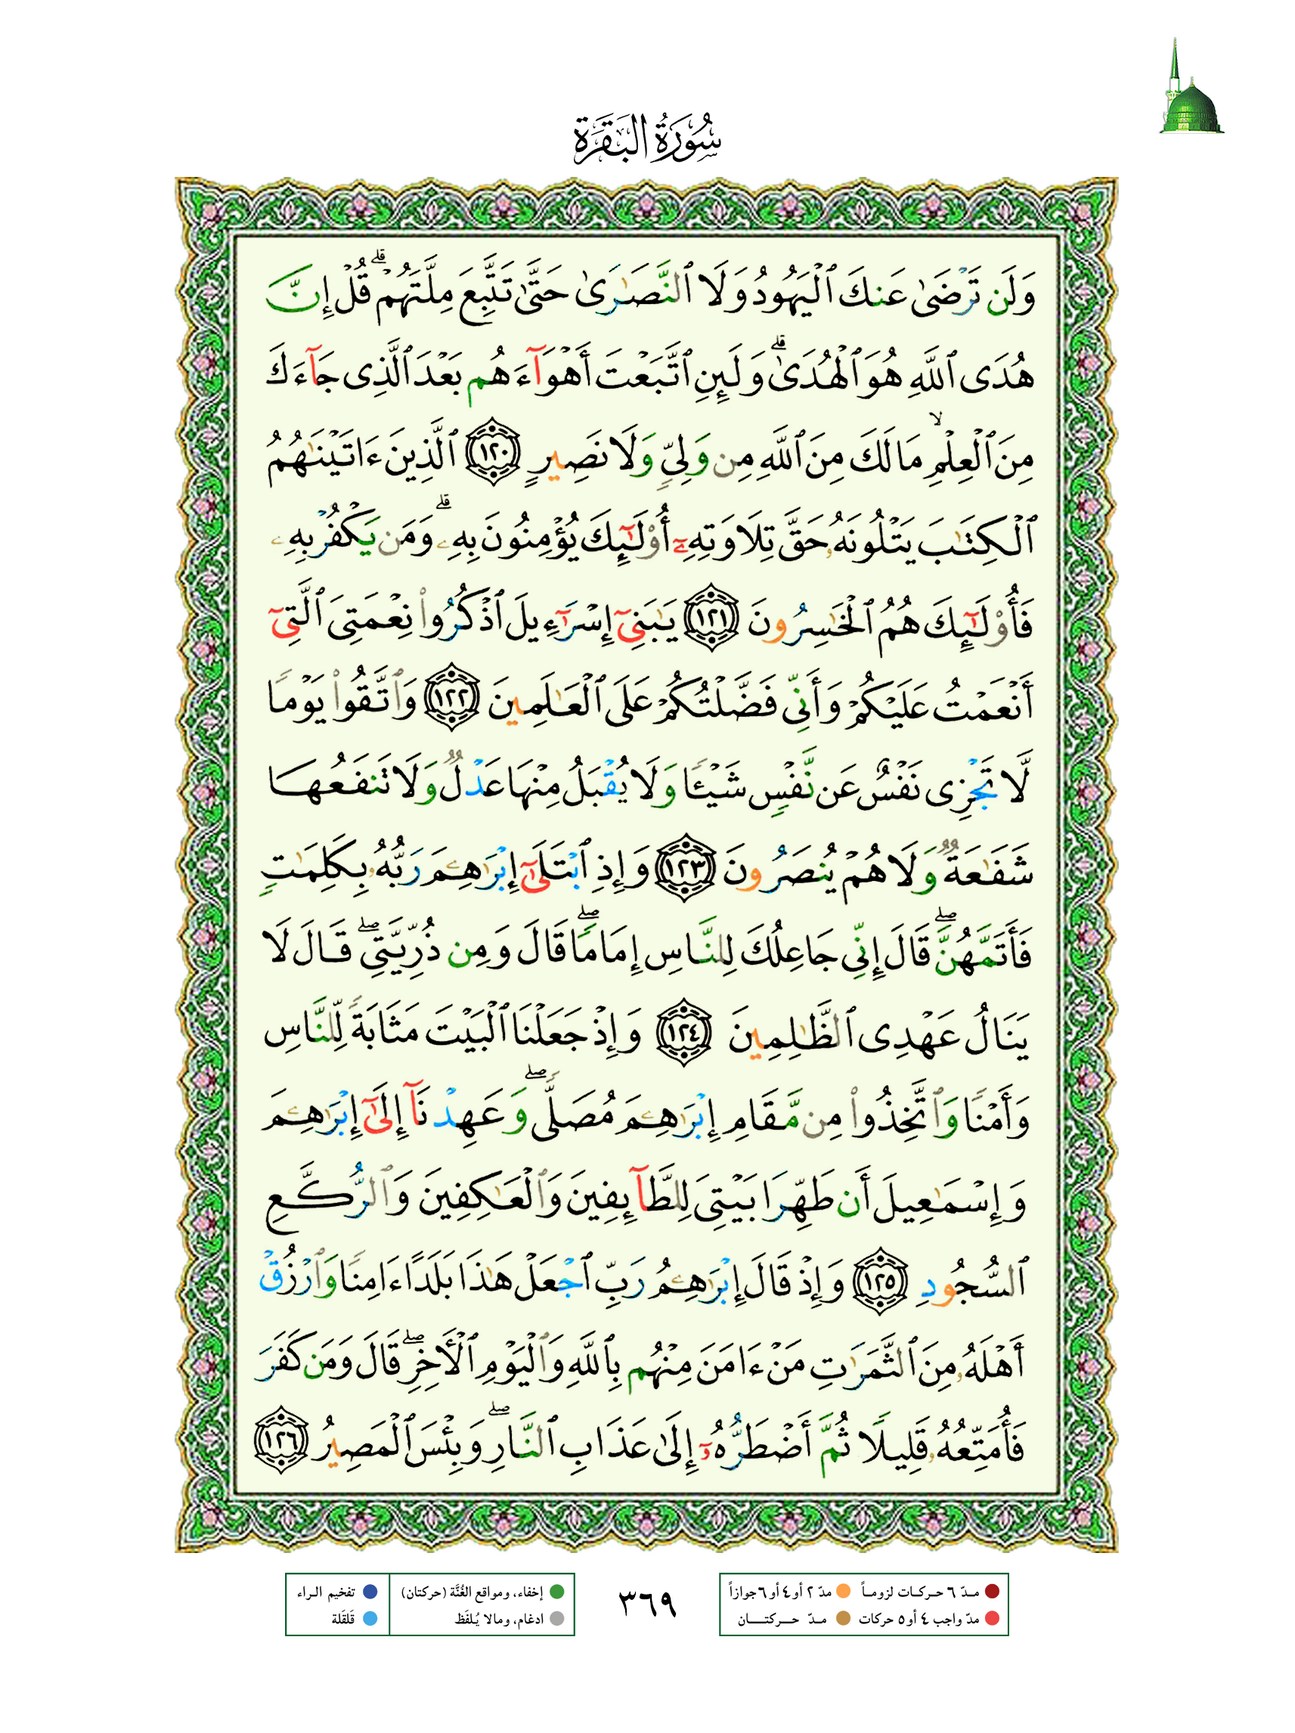 سُورَةُ البَقَرَة
وَلَن تَرْضَىٰ عَنكَ ٱلْيَهُودُ وَلَا ٱلنَّصَـٰرَىٰ حَتَّىٰ تَتَّبِعَ مِلَّتَهُمْ ۗ قُلْ إِنَّ
هُدَى ٱللَّهِ هُوَ ٱلْهُدَىٰ ۗ وَلَئِنِ ٱتَّبَعْتَ أَهْوَآءَهُم بَعْدَ ٱلَّذِى جَآءَكَ
مِنَ ٱلْعِلْمِ ۙ مَا لَكَ مِنَ ٱللَّهِ مِن وَلِىٍّ وَلَا نَصِيرٍ ١٢٠ ٱلَّذِينَ ءَاتَيْنَـٰهُمُ
ٱلْكِتَـٰبَ يَتْلُونَهُۥ حَقَّ تِلَاوَتِهِۦٓ أُو۟لَـٰٓئِكَ يُؤْمِنُونَ بِهِۦ ۗ وَمَن يَكْفُرْ بِهِۦ
فَأُو۟لَـٰٓئِكَ هُمُ ٱلْخَـٰسِرُونَ ١٢١ يَـٰبَنِىٓ إِسْرَٰٓءِيلَ ٱذْكُرُوا۟ نِعْمَتِىَ ٱلَّتِىٓ
أَنْعَمْتُ عَلَيْكُمْ وَأَنِّى فَضَّلْتُكُمْ عَلَى ٱلْعَـٰلَمِينَ ١٢٢ وَٱتَّقُوا۟ يَوْمًا
لَّا تَجْزِى نَفْسٌ عَن نَّفْسٍ شَيْـًٔا وَلَا يُقْبَلُ مِنْهَا عَدْلٌ وَلَا تَنفَعُهَا
شَفَـٰعَةٌ وَلَا هُمْ يُنصَرُونَ ١٢٣ وَإِذِ ٱبْتَلَىٰٓ إِبْرَٰهِـۧمَ رَبُّهُۥ بِكَلِمَـٰتٍ
فَأَتَمَّهُنَّ ۖ قَالَ إِنِّى جَاعِلُكَ لِلنَّاسِ إِمَامًا ۖ قَالَ وَمِن ذُرِّيَّتِى ۖ قَالَ لَا
يَنَالُ عَهْدِى ٱلظَّـٰلِمِينَ ١٢٤ وَإِذْ جَعَلْنَا ٱلْبَيْتَ مَثَابَةً لِّلنَّاسِ
وَأَمْنًا وَٱتَّخِذُوا۟ مِن مَّقَامِ إِبْرَٰهِـۧمَ مُصَلًّى ۖ وَعَهِدْنَآ إِلَىٰٓ إِبْرَٰهِـۧمَ
وَإِسْمَـٰعِيلَ أَن طَهِّرَا بَيْتِىَ لِلطَّآئِفِينَ وَٱلْعَـٰكِفِينَ وَٱلرُّكَّعِ
ٱلسُّجُودِ ١٢٥ وَإِذْ قَالَ إِبْرَٰهِـۧمُ رَبِّ ٱجْعَلْ هَـٰذَا بَلَدًا ءَامِنًا وَٱرْزُقْ
أَهْلَهُۥ مِنَ ٱلثَّمَرَٰتِ مَنْ ءَامَنَ مِنْهُم بِٱللَّهِ وَٱلْيَوْمِ ٱلْأَخِرِ ۖ قَالَ وَمَن كَفَرَ
فَأُمَتِّعُهُۥ قَلِيلًا ثُمَّ أَضْطَرُّهُۥٓ إِلَىٰ عَذَابِ ٱلنَّارِ ۖ وَبِئْسَ ٱلْمَصِيرُ ١٢٦
مـدّ ٦ حركـات لزومـاً مدّ ٢ أو٤ أو ٦ جوازاً
مدّ واجب ٤ أو٥ حركات مـدّ حـــركتــــان
٣٦٩
إخفاء، ومواقع الغُنَّة (حركتان) تفخيم الـراء
ادغام، ومالا يُـلفَظ قَلقَلة